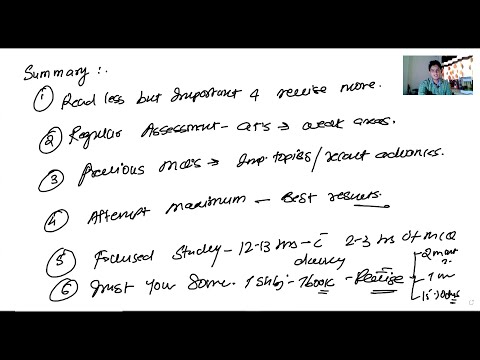 Summary:.
① Read less but Important & revise more.
② Regular Assessment - GT's → weak areas.
③ Previous MCQ's → Imp. topics/recent advances.
④ Attempt maximum - Best results.
⑤ Focused Study - 12-13 hrs - c̄ 2-3 hrs of MCQ
⑥ Trust your Some. 1 subj - 1book - Revise
2 mont
1 m
15 days